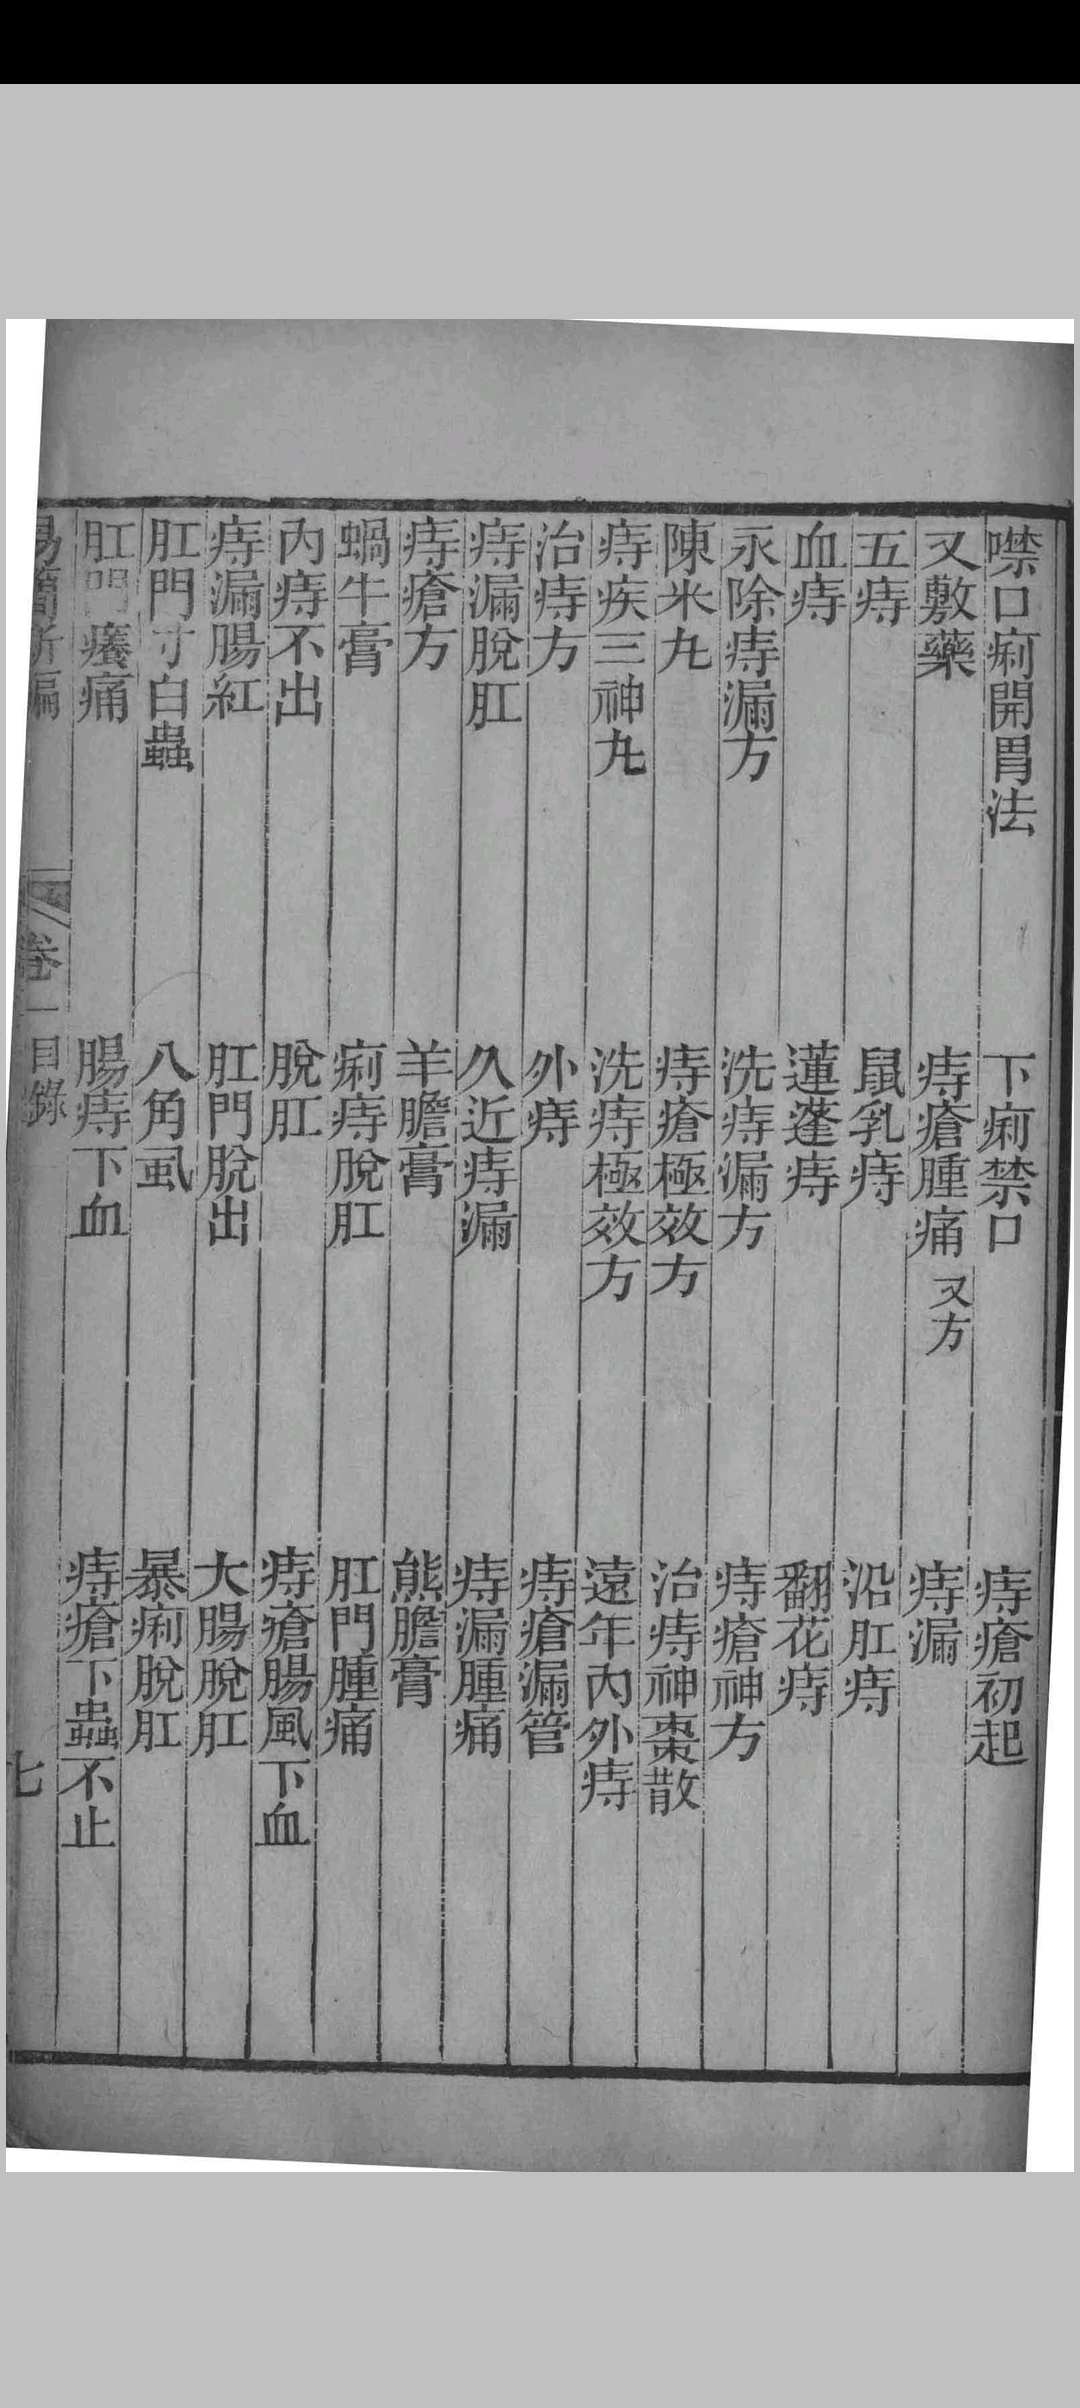 噤口痢開胃法　下痢禁口　痔瘡初起
又敷藥　痔瘡腫痛　又方　痔漏
五痔　鼠乳痔　沿肛痔
血痔　蓮蓬痔　翻花痔
永除痔漏方　洗痔漏方　痔瘡神方
陳米丸　痔瘡極效方　治痔神棗散
痔疾三神丸　洗痔極效方　遠年內外痔
治痔方　外痔　痔瘡漏管
痔漏脫肛　久近痔漏　痔漏腫痛
痔瘡方　羊膽膏　熊膽膏
蝸牛膏　痢痔脫肛　肛門腫痛
內痔不出　脫肛　痔瘡腸風下血
痔漏腸紅　肛門脫出　大腸脫肛
肛門寸白蟲　八角虱　暴痢脫肛
肛門癢痛　腸痔下血　痔瘡下蟲不止
易簡新編　卷一　目錄　七